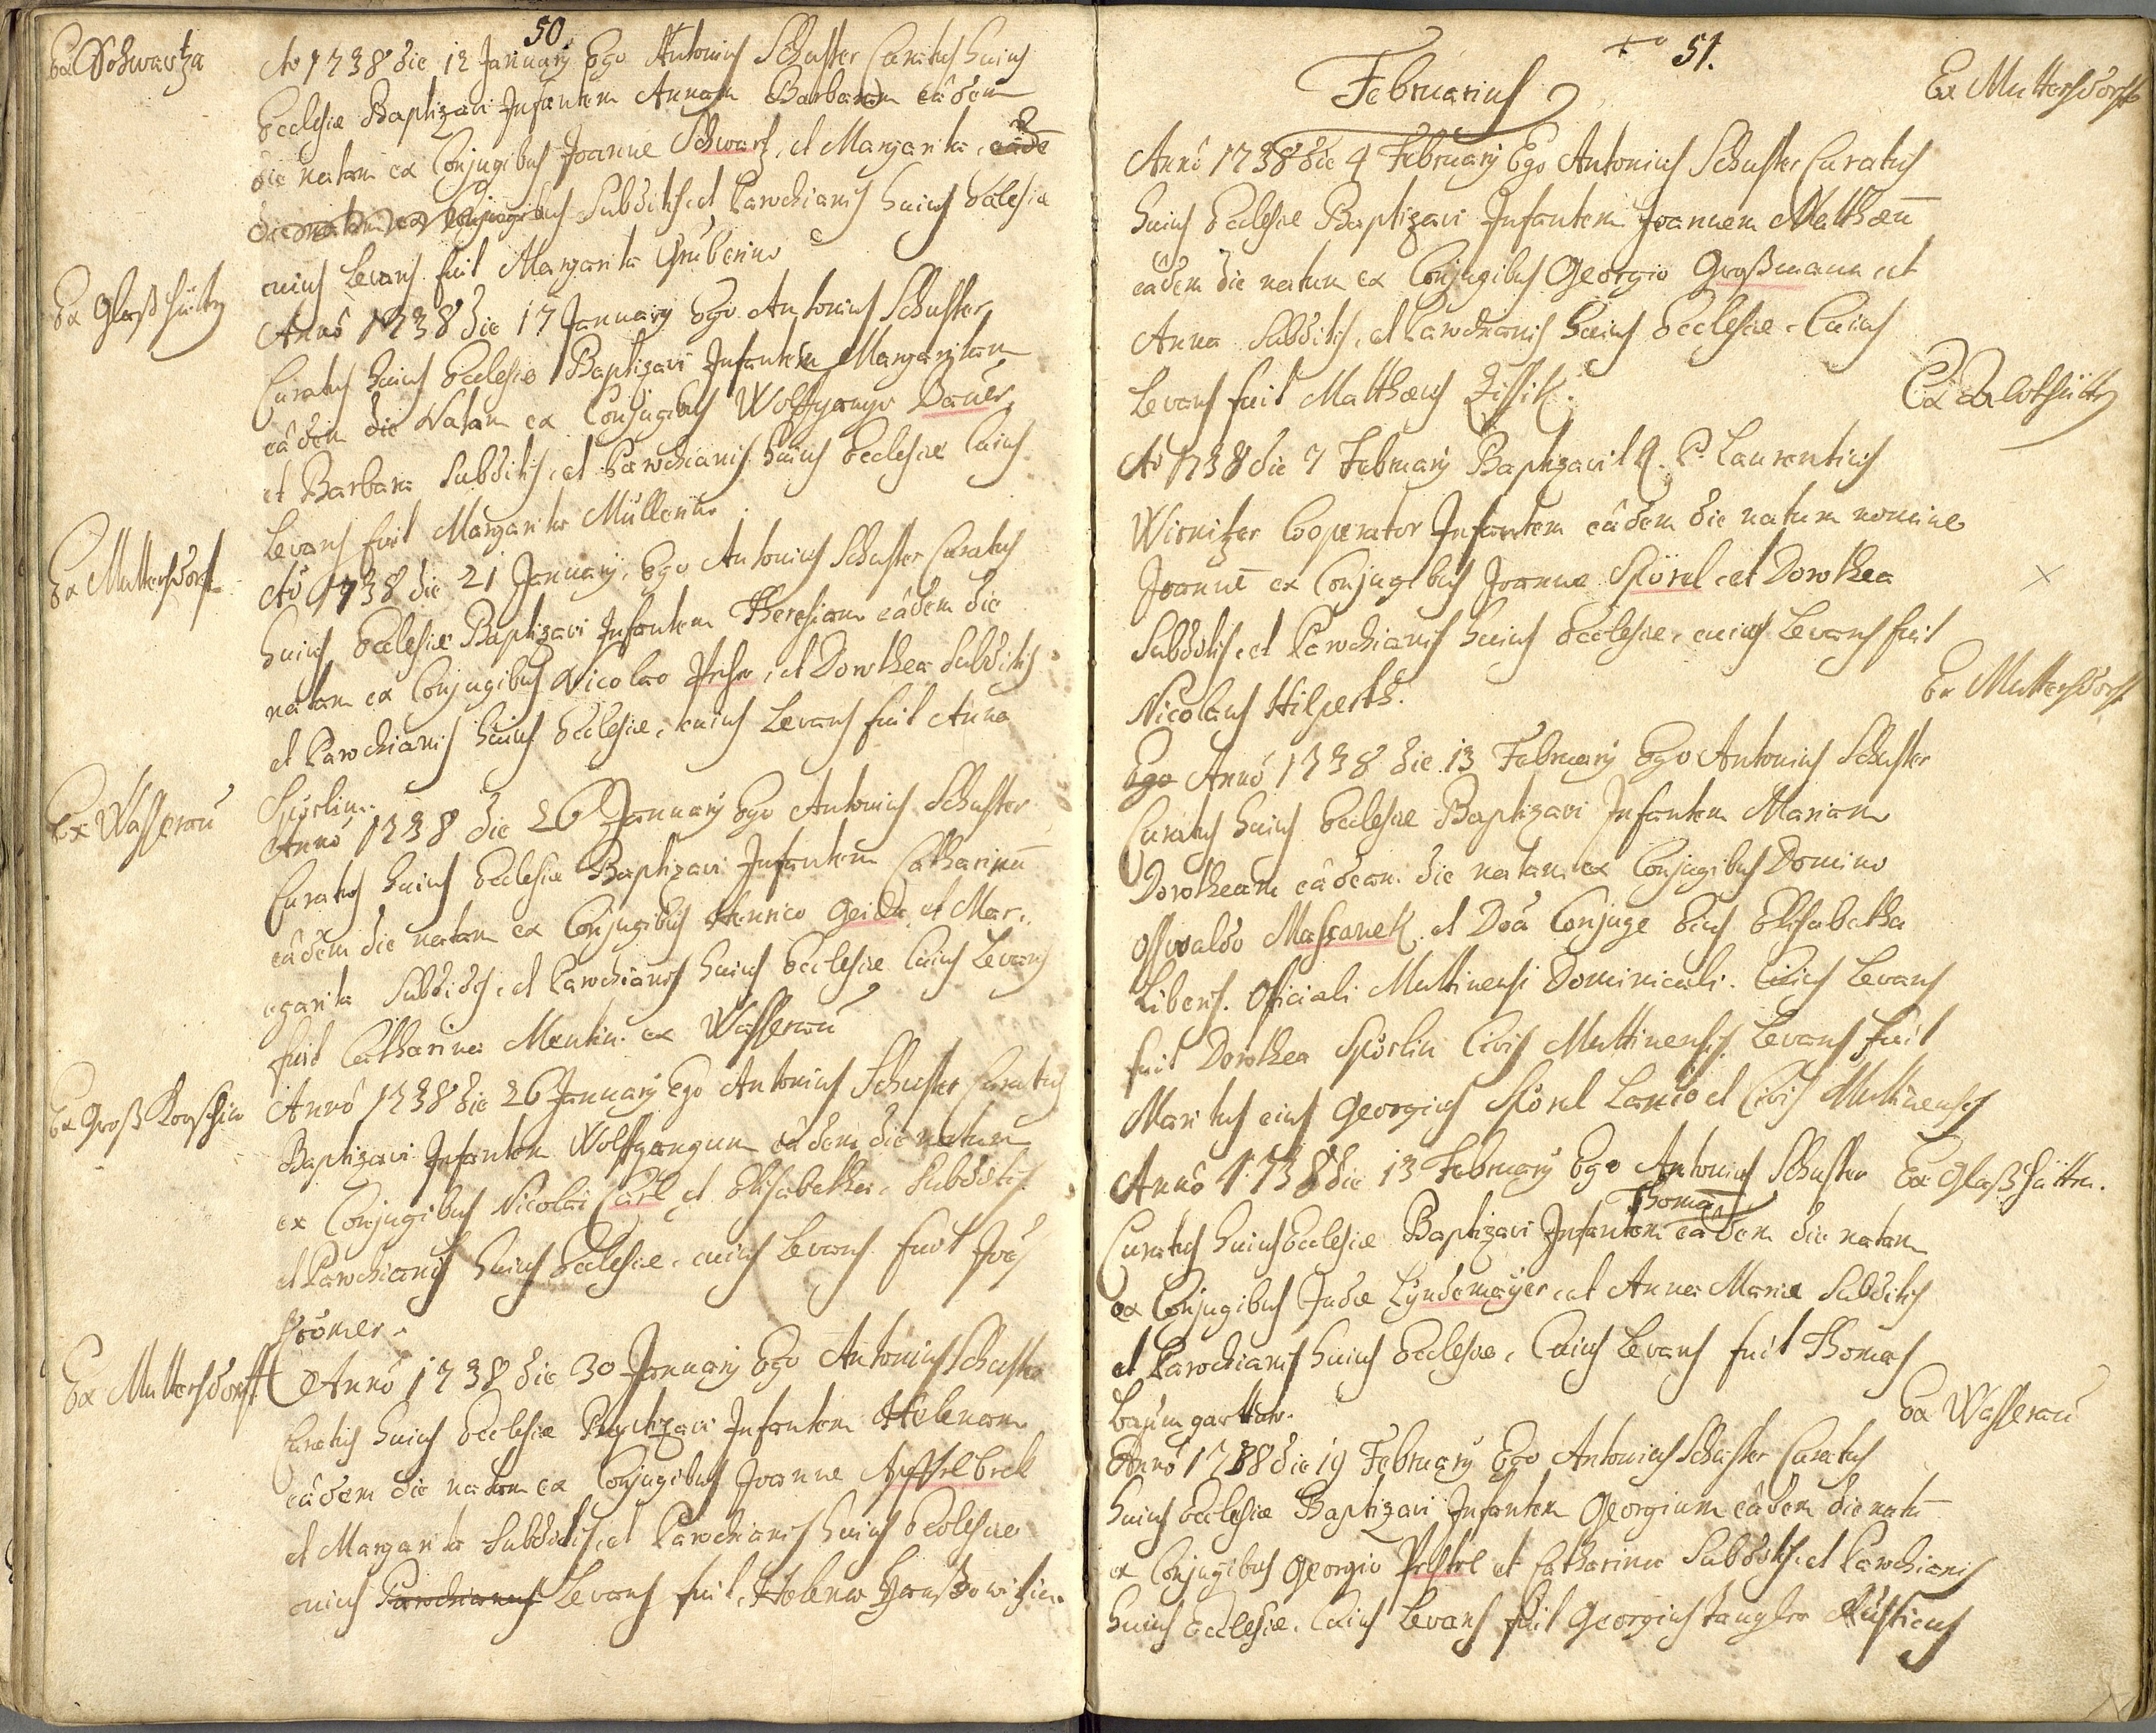 50.
Ex Schwartza
Ao 1738 die 12 January Ego Antonius Schuster Curatus huius
Ecclesiæ Baptizavi Infantem Annam Barbaram eâdem
die natam ex Conjugibus Joanne Schwartz, et Margarita, eâde
die natam ex Conjugibus Subditis, et Parochianis huius Eclesiæ
cuius Levans fuit Margarita Gruberin
Ex Glaßhütten
Annô 1738 die 17 January Ego Antonius Schuster
Curatus huius Ecclesiæ Baptizavi Infantem Margaritam
eâdem die Natam ex Conjugibus Wolffgango Bauer,
et Barbara Subditis, et Parochianis huius Ecclesiæ Cuius
Levans fuit Margarita Müllerin
Ex Muttersdorf
Aô 1738 die 21 January. Ego Antonius Schuster Curatus
huius Ecclesiæ Baptizavi Infantem Theresiam eâdem die
natam ex Conjugibus Nicolao , et Dorothea Subditis
et Parochianis huius Ecclesiæ, cuius Levans fuit Anna
Spörlin.
Ex Wasserau
Annô 1738 die 26 January Ego Antonius Schuster
Curatus huius Ecclesiæ Baptizavi Infantem Catharinā
eâdem die natam ex Conjugibus Henrico Geidl et Mar-
garita Subditis, et Parochianis huius Ecclesiæ Cuius Levans
fuit Catharina Mentin ex Wasserau
Ex Groß
Annô 1738 die 26 January Ego Antonius Schuster Curatus
Baptizavi Infantem Wolffgangum eâdem die natum
ex Conjugibus Nicolai Carl et Elisabetha, Subditis
et Parochianis huius Ecclesiæ, cuius Levans fuit Joēs
Krömer.
Ex Muttersdorff
Annô 1738 die 30 January Ego Antonius Schuster
Curatus huius Ecclesiæ Baptizavi Infantem Helenam
eâdem die natam ex Conjugibus Joanne Apffelbeck
et Margarita Subditis, et Parochianis huius Ecclesiæ
cuius Parochianus Levans fuit, Helena
51.
Februarius
Ex Muttersdorff
Annô 1738 die 4 February Ego Antonius Schuster Curatus
huius Ecclesiæ Baptizavi Infantem Joannem Matthæū
eâdem die natum ex Conjugibus Georgio Großmann et
Anna Subditis, et Parochianis huius Ecclesiæ. Cuius
Levans fuit Matthæus Zissik.
Ao 1738 die 7 February Baptizavit R. P. Laurentius
Wirnitzer Cooperator Infantem eâdem die natum nomine
Joannē ex Conjugibus Joanne Spörel et Dorothea
Subditis, et Parochianis huius Ecclesiæ, cuius Levans fuit
Nicolaus Hilperth.
Ex Muttersdorff
Ego Annô 1738 die 13 February Ego Antonius Schuster
Curatus huius Ecclesiæ Baptizavi Infantem Mariam
Dorotheam eâdem die natam ex Conjugibus Domino
Osswaldo Maschanek et Doâ Conjuge Eius Elisabetha
Libens. Officiali Muttinensi Dominicali. Cuius Levans
fuit Dorothea Spörlin Civis Muttinensis, Levans fuit
Maritus eius Georgius Spörel Lanio et Civis Muttinensis
Ex Glaßhütten.
Annô 1738 die 13 February Ego Antonius Schuster
Curatus huius Ecclesiæ Baptizavi Infantem Thomā eâdem die natam
ex Conjugibus Judæ Lyndemayer, et Anna Maria Subditis
et Parochianis huius Ecclesiæ, Cuius Levans fuit Thomas
Baumgartter.
Ex Wasserau
Annô 1738 die 19 February Ego Antonius Schuster Curatus
huius Ecclesiæ Baptizavi Infantem Georgium eâdem die natū
ex Conjugibus Georgio et Catharina Subditis, et Parochianis
huius Ecclesiæ. Cuius Levans fuit Georgius Rusticus